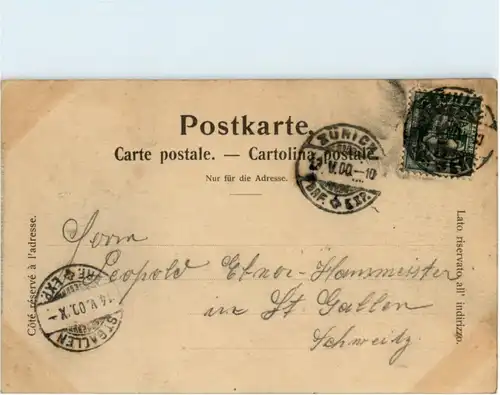 Postkarte.
Carte postale. — Cartolina postale.
Nur für die Adresse.
Côté réservé à l'adresse.
Lato riservato all' indirizzo.
ZÜRICH
V.00.-10
BRF. EXP.
Herrn
Leopold Ebner-Hammeister
in St. Gallen
Schweitz
ST. GALLEN
V.00.X
EXP.